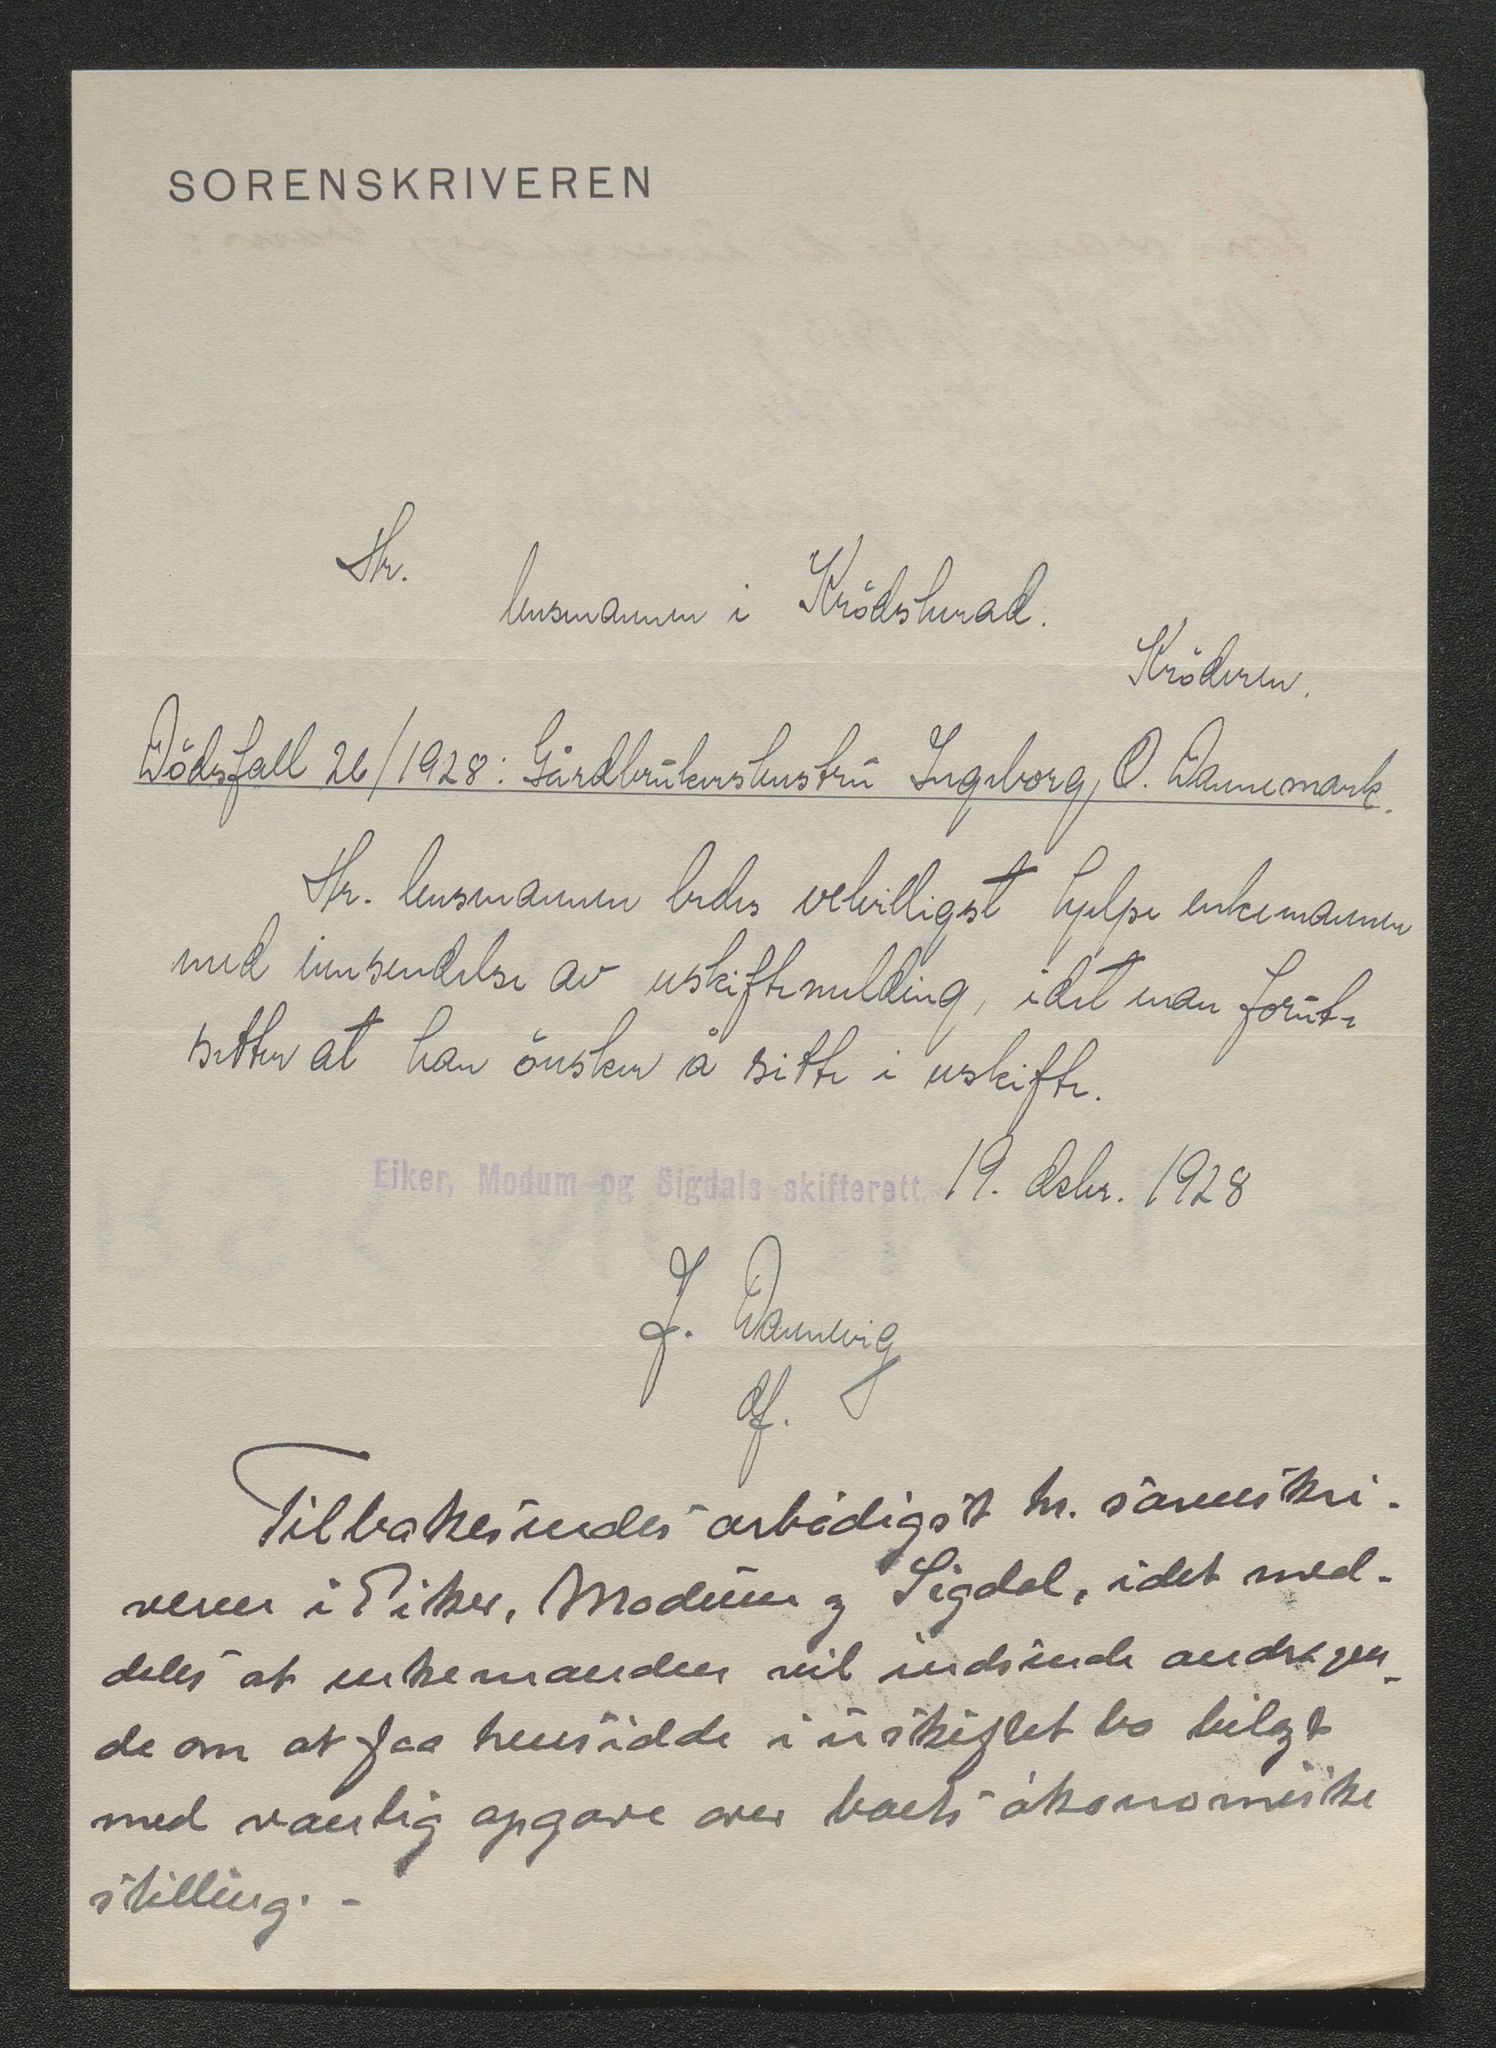 SORENSKRIVEREN
Hr.
lensmannen i Krödsherad.
Kröderen.
Dödsfall 26/1928: Gårdbrukerhustru Ingeborg O. Dannemark.
Hr. lensmannen bedes velvilligst hjelpe enkemannen
med innsendelse av uskiftemelding, idet man forut-
setter at han önsker å sitte i uskifte.
Eiker, Modum og Sigdals skifterett, 19. desbr. 1928
J. Dannevig
df.
Tilbakesendes ærbödigst hr. sorenskri-
veren i Eiker, Modum og Sigdal, idet med-
deles at enkemanden vil indsende andragen-
de om at faa hensidde i uskiftet bo bilagt
med vanlig opgave over boets ökonomiske
stilling. -